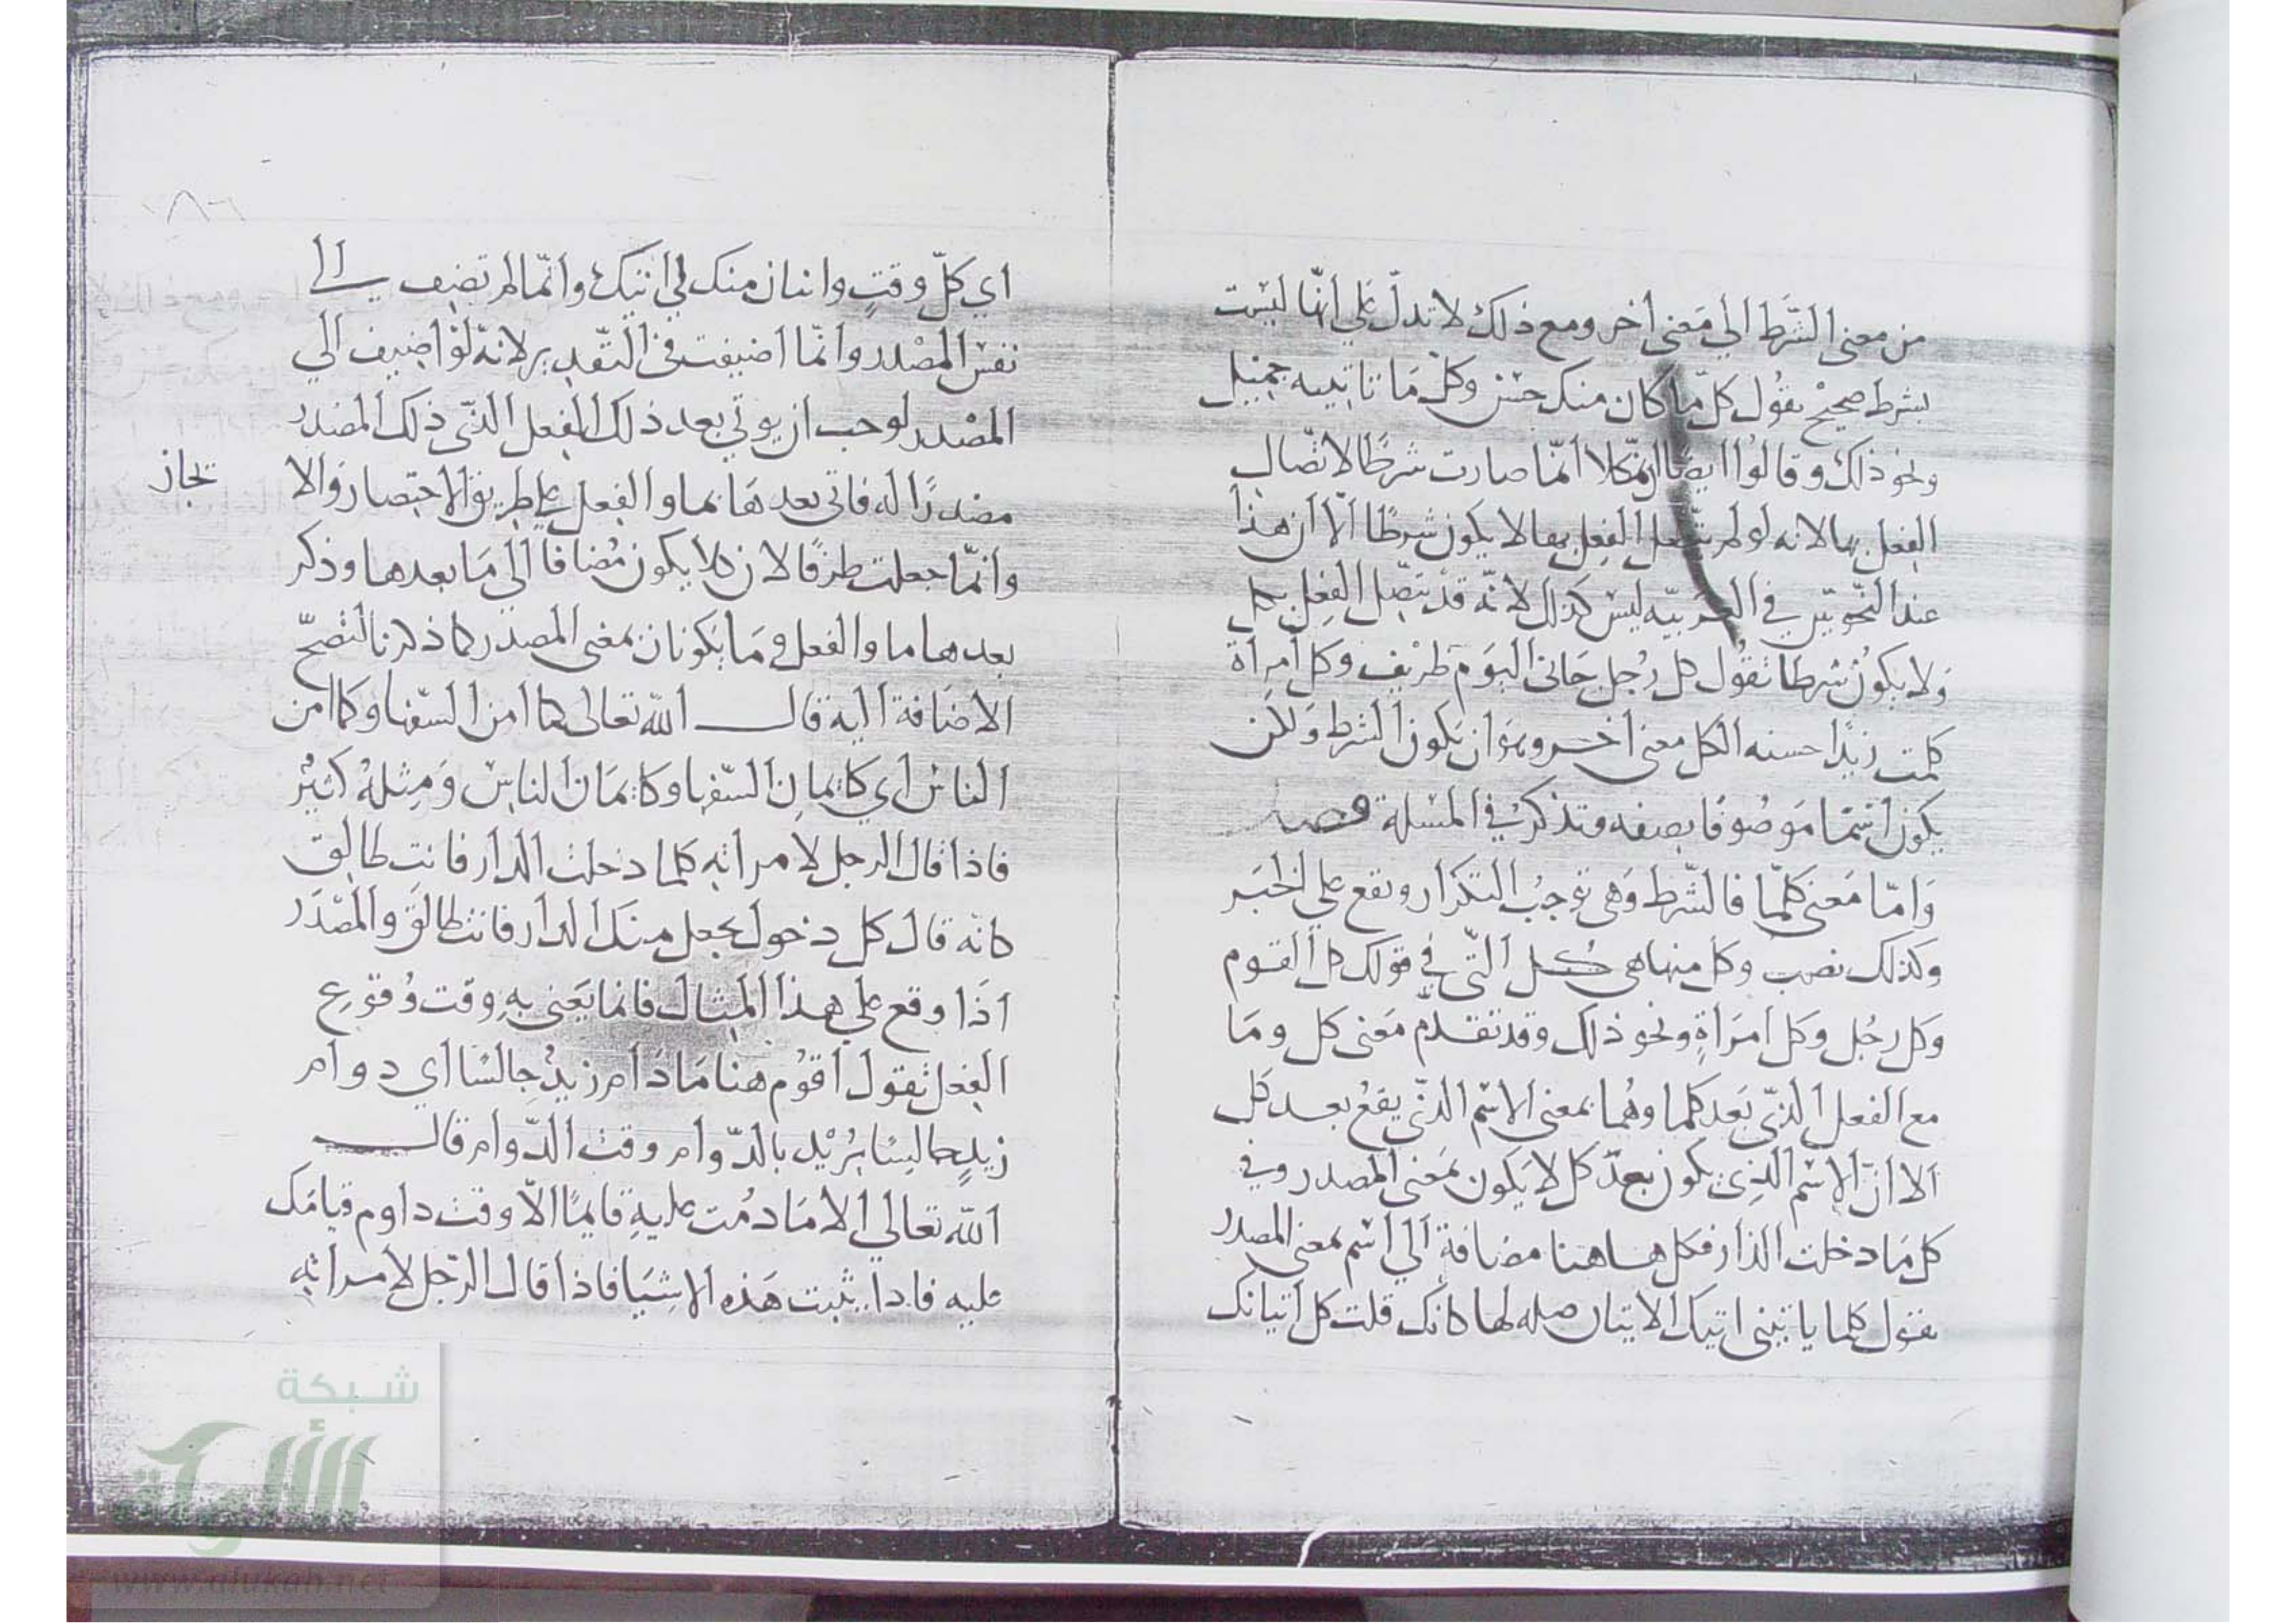 من معنى الشَّرط الي مَعنى أخر ومع ذلك لا تدلّ علي انّها ليْست
بشرط صحيحٌ يقُول كلّ ما كان منك حسن وكلّ مَا تاتيه جميْل
ونحو ذلك وقالوُا ايضًا انّ كلا انّما صارت شرطًا لاتّصال
الفعل بها لانه لو لم يتّصل الفِعل بها لا يكون شرطًا الّا ان هذا
عند النّحوييّن في العربيّه ليس كذلك لانّه قد يتّصل الفِعل بكل
وَلا يكوُن شرطًا تقوُل كل رُجل جَاني اليَومَ ظريْف وكل أمرأة
كلمت زيدًا حسنه الكل معنى أخر وهوَ ان يَكون الشرط وَلكن
يكون اسْمًا مَوصُوفًا بصفه وتذكر في المسْلة فصل
وَامّا مَعنى كلمّا فالشّرط وَهى توجُب التكرار وتقع علي الخبَر
وكذلك نصب وكل منها هى كُـل التّي في قولك كل القوم
وكل رجُل وكل أمرَأةٍ ونحو ذلك وقد تقدّم مَعنى كل ومَا
مع الفعل الذّي بَعد كلما وهُما بمعنى الاسْم الذّي يقعُ بعـد كل
الا انّ الاِسْم الذِي يكون بعدَ كل لا يَكون بمَعنى المصدر وفي
كل مَا دخلت الدّار فكل هـاهنا مضافة الي اسْم بمعنى المصدر
يقول كلما ياتينى اتيك الاتيان صله لها كانك قلت كل أتيانك
اي كلّ وقتٍ واتيان منك لي اتيتك وانّما لم تضف الي
نفسْ المصْدر وانّما اضيفت في التّقدير لانهّ لوْ اضيف الي
المصْدر لوجب ان يوتي بعد ذلك الفعل الذّي ذلك المصْدر
مصْدرًا له فاتى بعدهَا بما والفعل علي طريق الاختصار وَالا
تجاز
وانّما جعلت ظرفًا لان كلا يكون مُضافًا الي مَا بعدها وذكر
بعدها ما والفعل ومَا يَكونان بمعنى المصدر كما ذكرنا لتصحّ
الاضَافة اليه قال الله تعالى كما امن السّفها وكما امن
الناسْ أي كايمانِ السّفها وكايمَان الناسِ وَمِثلهُ كثيْر
فاذا قال الرجل لامراته كلما دخلت الدار فانت طالق
كانّه قال كل دخول يجعل منك الدار فانت طالق والمصْدَر
اذَا وقع علي هذا المثال فانما يَعنى بهِ وقت وُقوعِ
الفعل تقول أقوُم هنا مَا دَام زيدٌ جالسًا أي دوام
زيدٍ جالسًا يُريْد بالدّوام وقت الدّوام قال
الله تعالي الا مَا دمُت عليهِ قايمًا الّا وقت داوم قيامَك
عليه فاذا ثبت هَذه الاشيَا فاذا قال الرّجل لامراته
شبكة
الألوكة
www.alukah.net